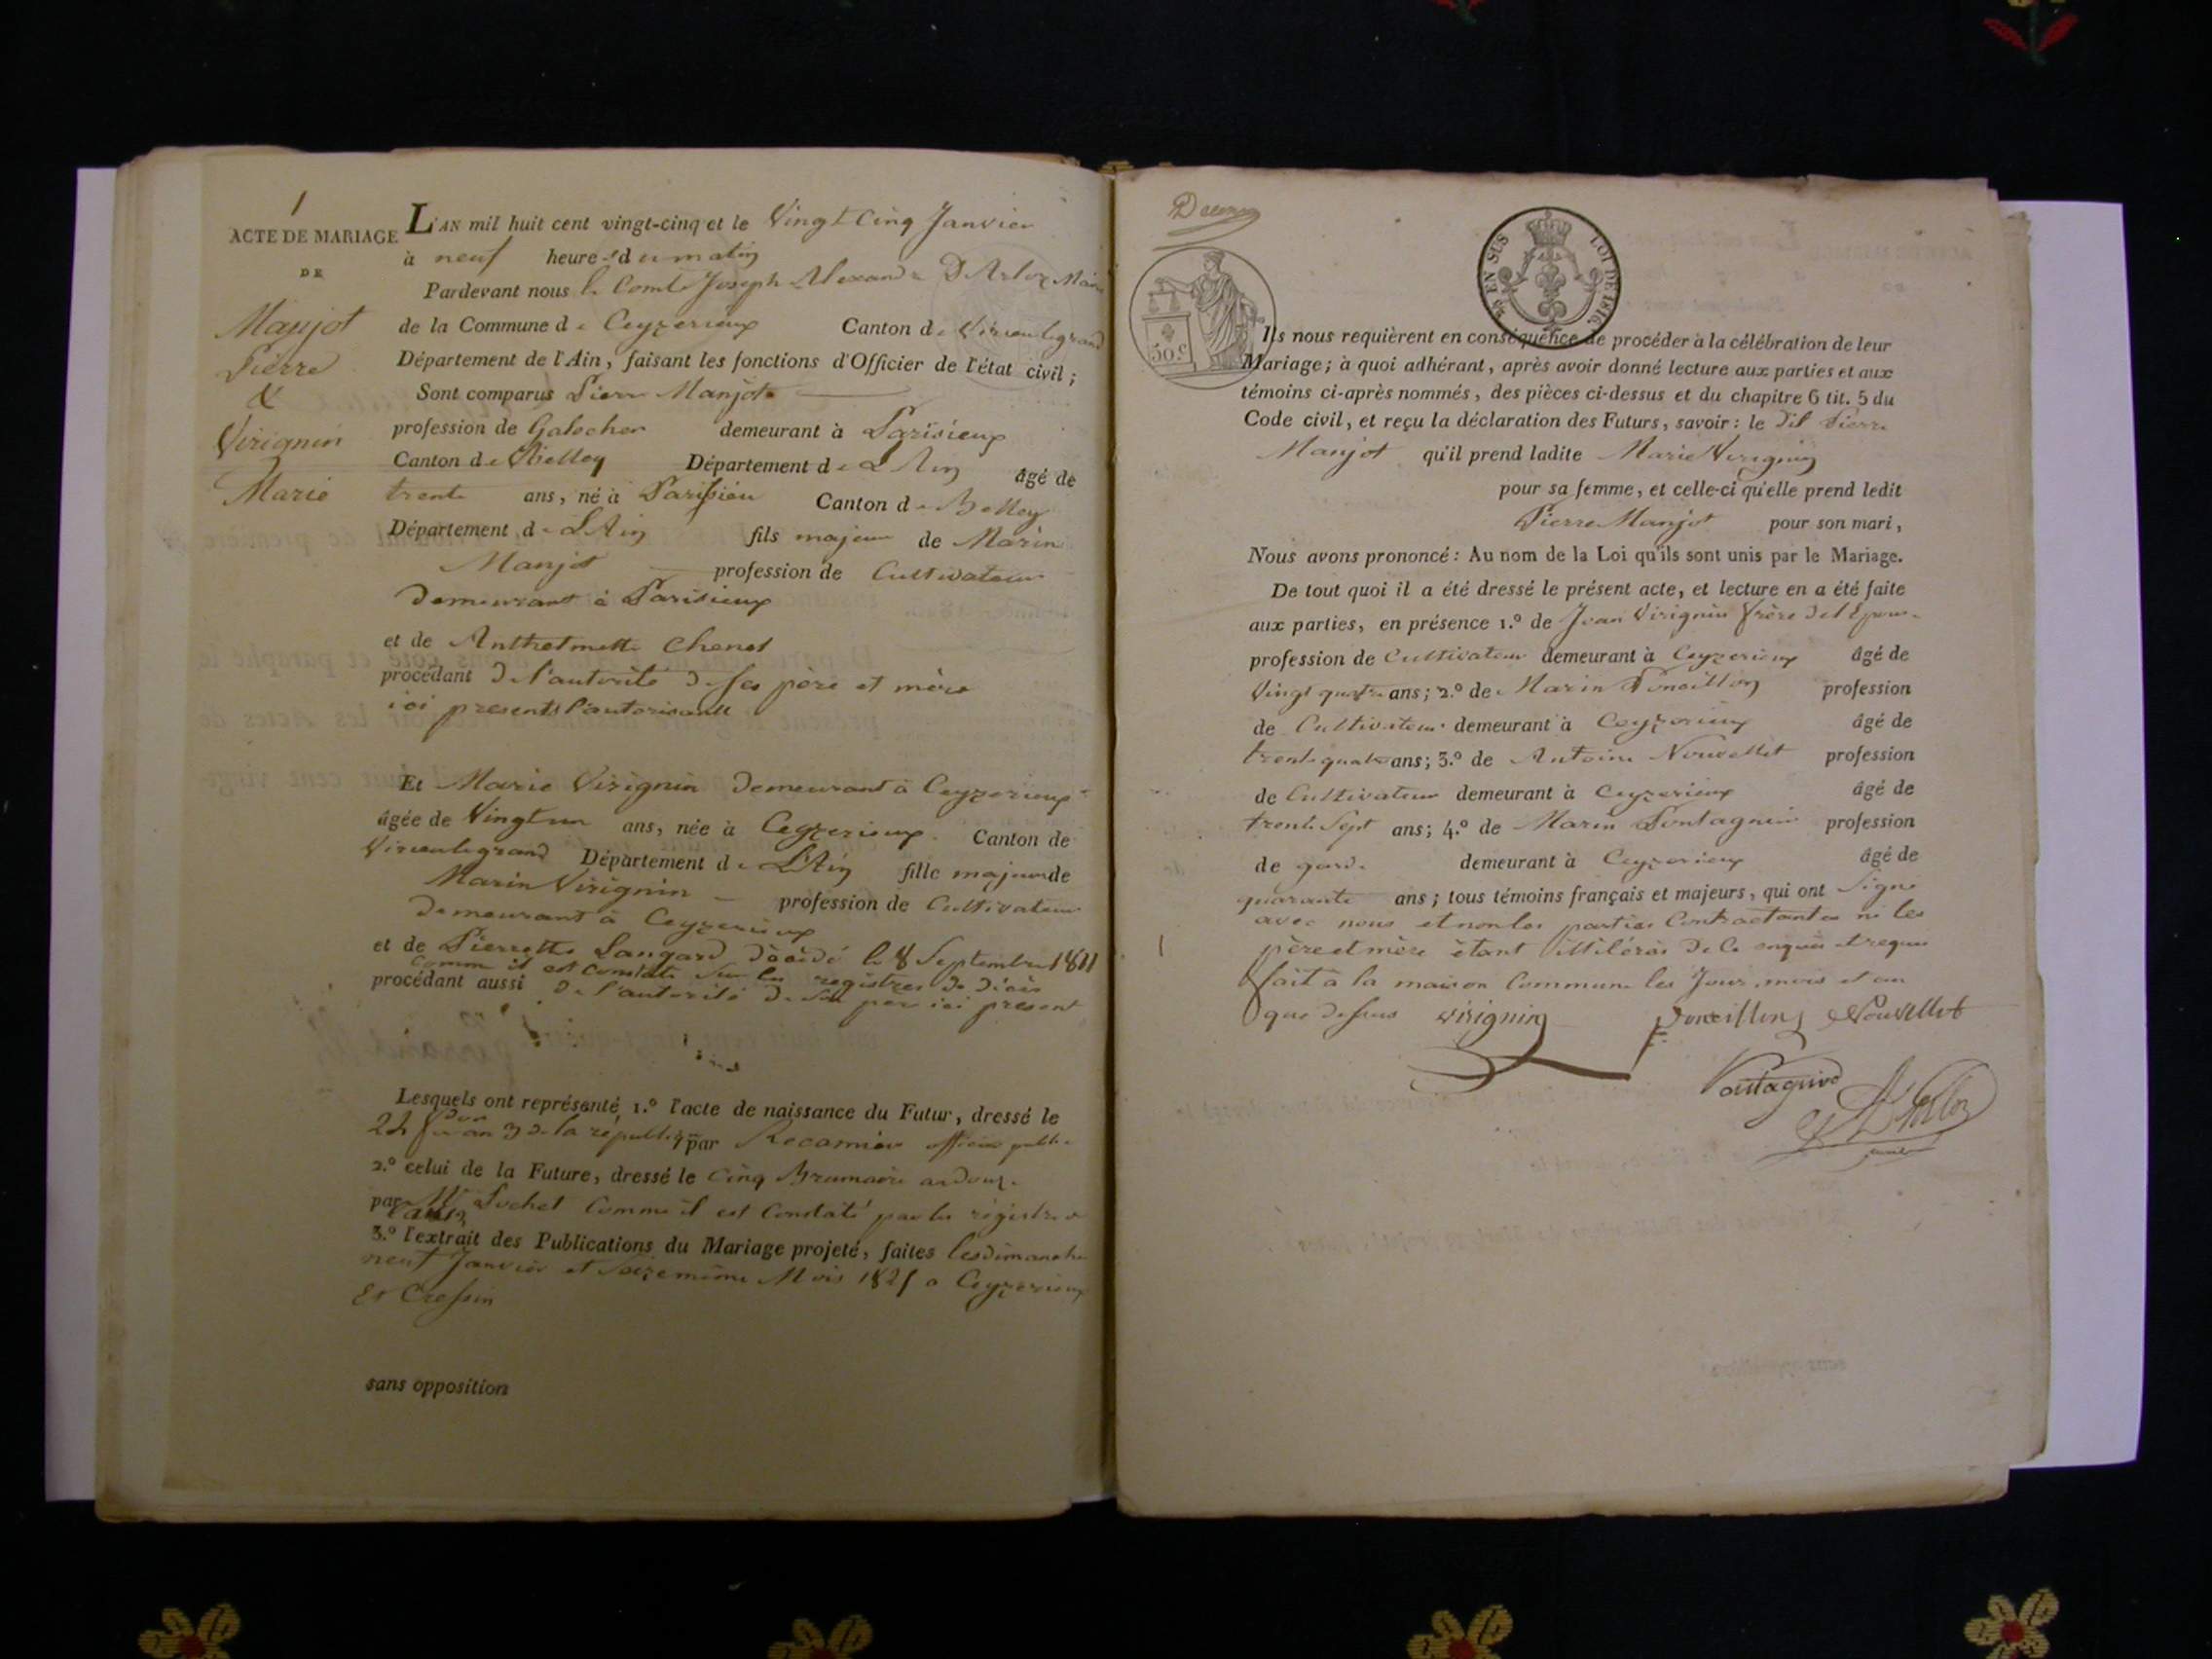 1
ACTE DE MARIAGE
DE
Manjot
Pierre
&
Virignin
Marie
L'AN mil huit cent vingt-cinq et le Vingt Cinq Janvier
à neuf heures du matin
Pardevant nous le Comte Joseph Alexandre D'Arloz Maire
de la Commune de Ceyzerieux Canton de Virieulegrand
Département de l'Ain, faisant les fonctions d'Officier de l'état civil;
Sont comparus Pierre Manjot
profession de Galocher demeurant à Parisieux
Canton de Belley Département de L'Ain âgé de
trente ans, né à Parissieu Canton de Belley
Département de L'Ain fils majeur de Marin
Manjot profession de Cultivateur
demeurant à Parisieux
et de Anthelmette Chenet
procédant De l'autorité De ses père et mère
ici presents l'autorisant
Et Marie Virignin demeurant à Ceyzerieux
âgée de Vingt un ans, née à Ceyzerieux Canton de
Virieulegrand Département de L'Ain fille majeure de
Marin Virignin profession de Cultivateur
demeurant à Ceyzerieux
et de Pierrette Langard décédé le 8 Septembre 1811
comme il est constaté sur les registres de décès
procédant aussi de l'autorité de son per ici present
Lesquels ont représenté, 1.º l'acte de naissance du Futur, dressé le
22 an 3 de la républiq par Recamier officier public
2.º celui de la Future, dressé le Cinq Brumaire an Douze
par Mr Pochet Comme il est Constaté par les régistres
3.º l'extrait des Publications du Mariage projeté, faites les dimanche
neuf Janvier et seize même Mois 1825 a Ceyzerieux
Et Cressin
sans opposition
EN SUS LOI DE 1816
50.c
Ils nous requièrent en conséquence de procéder à la célébration de leur
Mariage; à quoi adhérant, après avoir donné lecture aux parties et aux
témoins ci-après nommés, des pièces ci-dessus et du chapitre 6 tit. 5 du
Code civil, et reçu la déclaration des Futurs, savoir: le dit Pierre
Manjot qu'il prend ladite Marie Virignin
pour sa femme, et celle-ci qu'elle prend ledit
Pierre Manjot pour son mari,
Nous avons prononcé: Au nom de la Loi qu'ils sont unis par le Mariage.
De tout quoi il a été dressé le présent acte, et lecture en a été faite
aux parties, en présence 1.º de Jean Virignin frère de l'Epouse
profession de Cultivateur demeurant à Ceyzerieux âgé de
Vingt quatre ans; 2.º de Marin Poncillon profession
de Cultivateur demeurant à Ceyzerieux âgé de
trente quatre ans; 3.º de Antoine Nouvellet profession
de Cultivateur demeurant à Ceyzerieux âgé de
trente Sept ans; 4.º de Marin Pontagnin profession
de garde demeurant à Ceyzerieux âgé de
quarante ans; tous témoins français et majeurs, qui ont Signé
avec nous et non les parties Contractantes ni les
père et mère étant illitérés De ce enquis et requis
fait à la maison Commune les Jour, mois et an
que dessus virignin poncillon Nouvellet
D'Arloz